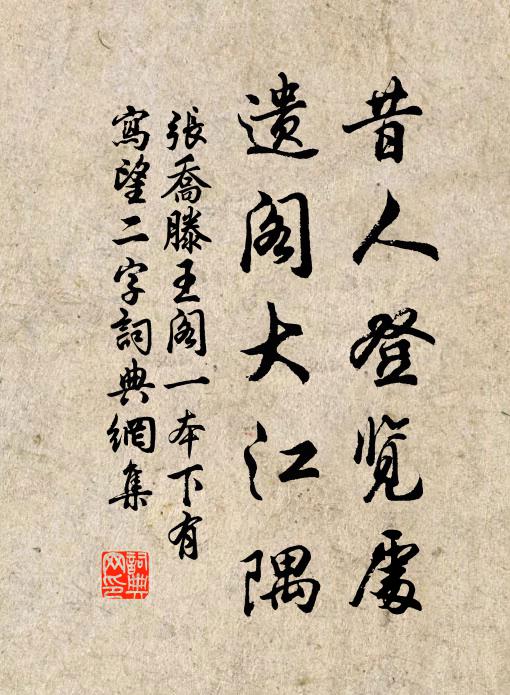 昔人登览處
遗阁大江隅
張喬滕王阁一本下有
寫望二字詞典網集
詞典网印